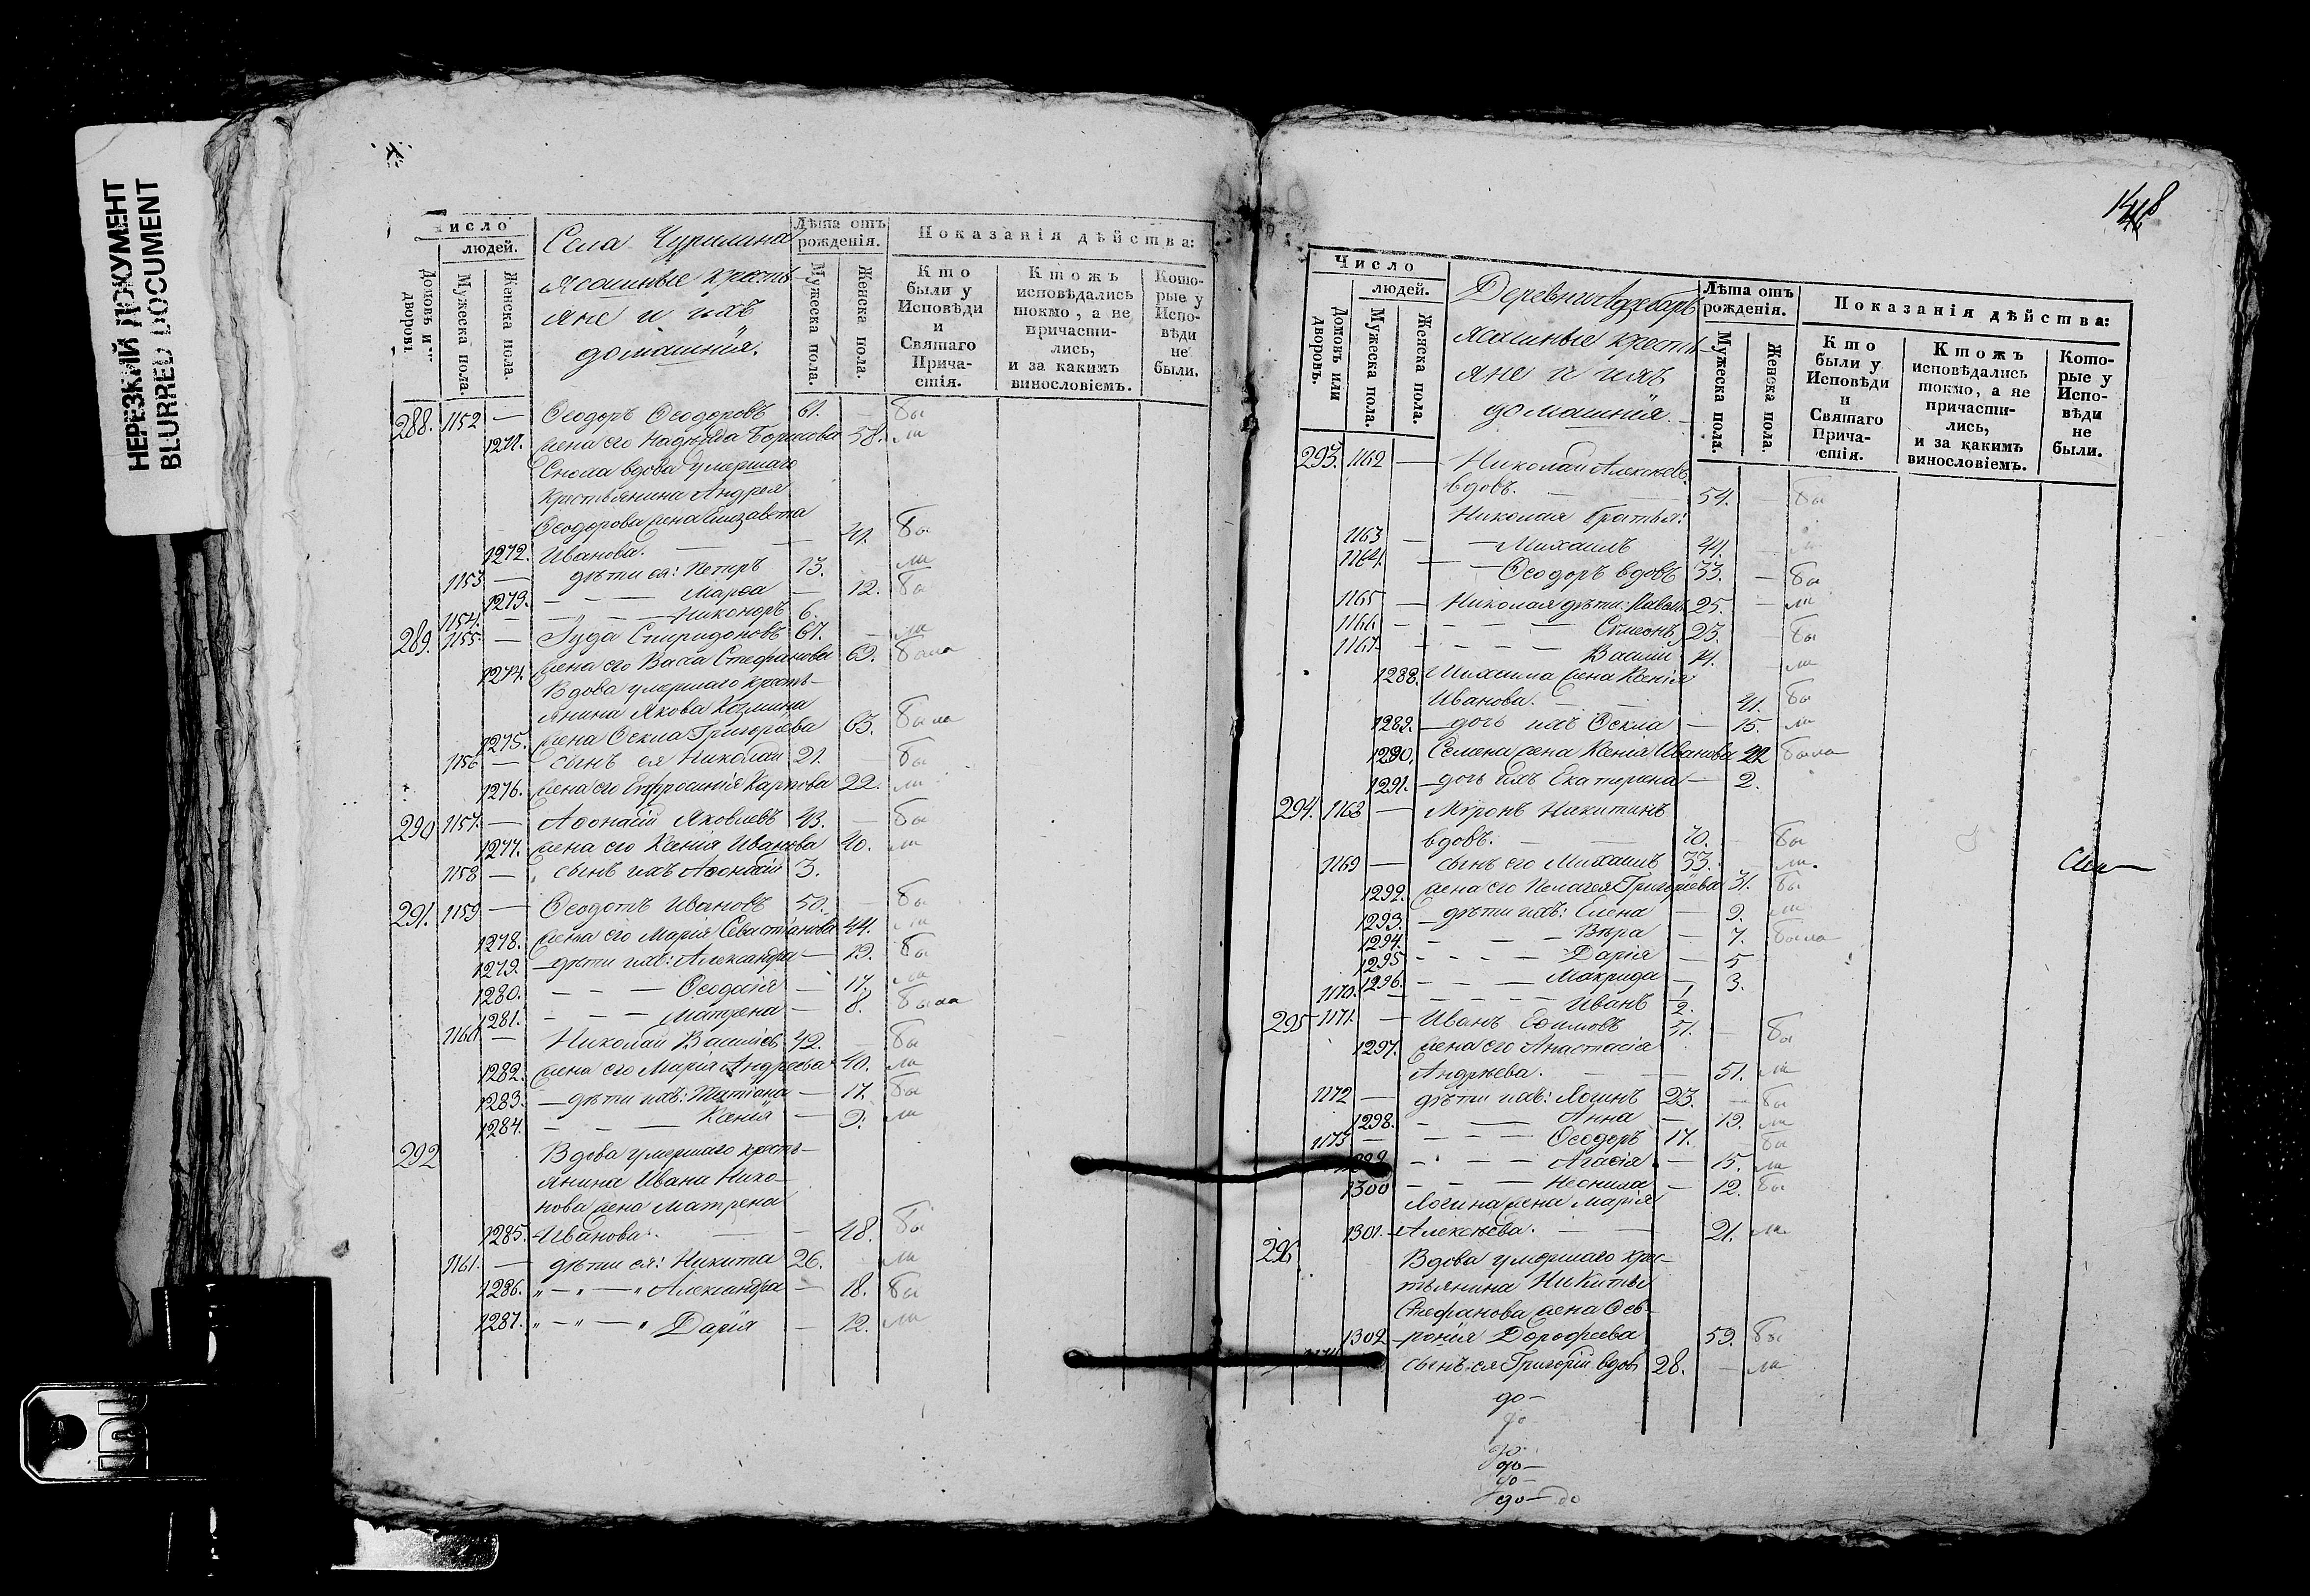 НЕРЕЗКИЙ ДОКУМЕНТ
BLURRED DOCUMENT
Число
людей.
Домовъ и
дворовъ.
Мужеска пола.
Женска пола.
Села Чурилина
ясашные кресть-
яне и ихъ
домашнія.
Лѣта отъ
рожденія.
Мужеска пола.
Женска пола.
Показанія дѣйства:
Кто
были у
Исповѣди
и
Святаго
Прича-
стія.
Ктожъ
исповѣдались
токмо, а не
причасти-
лись,
и за какимъ
винословіемъ.
Кото-
рые у
Испо-
вѣди
не
были.
288. 1152 — Ѳеодоръ Ѳеодоровъ 61. — бы
1271. жена его Надежда Борисова 58. ли
Снოха вдова умершаго
крестьянина Андрея
Ѳеодорова жена Елизавета
1272. Иванова. — — 41. бы
1153 — дѣти ея: Петръ 13. ли
1273. — — — Марѳа — 12. бы
1154. — — — Никоноръ 6.
289. 1155 — Іуда Спиридоновъ 67. — ли
1274. жена его Васса Стефанова 69. была
Вдова умершаго кресть-
янина Якова Козмина
1275. жена Ѳекла Григорьева 63. была
1156 — сынъ ея Николай 21. — бы
1276. жена его Евфросинія Карпова 22. ли
290 1157. — Аѳонасій Яковлевъ 43. — бы
1277. жена его Ксенія Иванова 40. ли
1158 — сынъ ихъ Аѳонасій 3.
291. 1159 — Ѳеодотъ Ивановъ 50. — бы
1278. жена его Марія Севастіанова 44. ли
1279. — дѣти ихъ: Александра — 19. бы
1280. — — — Ѳеодосія — 17. ли
1281. — — — Матрена — 8. была
1160 — Николай Васильевъ 42. — бы
1282. жена его Марія Андреева 40. ли
1283. — дѣти ихъ: Татіана — 17. бы
1284. — — — Ксенія — 9. ли
292
Вдова умершаго кресть-
янина Ивана Нико-
нова жена Матрена
1285. Иванова. — — 48. бы
1161. — дѣти ея: Никита 26. ли
1286. „ — „ — „ Александра — 18. бы
1287. „ — „ — „ Дарія — 12. ли
148
Число
людей.
Домовъ или
дворовъ.
Мужеска пола.
Женска пола.
Деревни
ясашные кресть-
яне и ихъ
домашнія.
Лѣта отъ
рожденія.
Мужеска пола.
Женска пола.
Показанія дѣйства:
Кто
были у
Исповѣди
и
Святаго
Прича-
стія.
Ктожъ
исповѣдались
токмо, а не
причасти-
лись,
и за какимъ
винословіемъ.
Кото-
рые у
Испо-
вѣди
не
были.
293. 1162 — Николай Алексѣевъ
вдовъ. — — 54. — бы
Николая братья:
1163 — — Михаилъ 44. — ли
1164. — — Ѳеодоръ вдовъ 33. — бы
1165 — Николая дѣти: Павелъ 25. — ли
1166 — — — — Сѵмеонъ 23. — бы
1167. — — — — Василій 14. — ли
1288. Михаила жена Ксенія
Иванова. — — 41. бы
1289. — дочь ихъ Ѳекла — 15. ли
1290. Семена жена Ксенія Иванова 22 была
1291. — дочь ихъ Екатерина — 2.
294. 1168 — Мѵронъ Никитинъ
вдовъ. — — 70. — бы
1169 — сынъ его Михаилъ 33. — ли.
1292. жена его Пелагея Григорьева 31. бы
1293. — дѣти ихъ: Елена — 9. ли
1294. — — — Вѣра — 7. была
1295 — — — Дарія — 5
1296. — — — Макрида — 3.
1170. — — — — Иванъ 1/2.
295 1171. — Иванъ Ефимовъ 51. — бы
1297. жена его Анастасія
Андрѣева. — — 51. ли
1172 — дѣти ихъ: Логинъ 23. — бы
1298. — — Анна — 19. ли
1173 — — — — Ѳеодоръ 17. — бы
1299 — — — Агафія — 15. ли
1300 — — — Неонила — 12. бы
Логина жена Марія
1301. Алексѣева. — — 21. ли
296
Вдова умершаго крес-
тьянина Никиты
Стефанова жена Фев-
1302 ронія Дорофеева 59. бы
сынъ ея Григорій вдовъ 28. — ли
до—
до
до
до—
до—
до— до